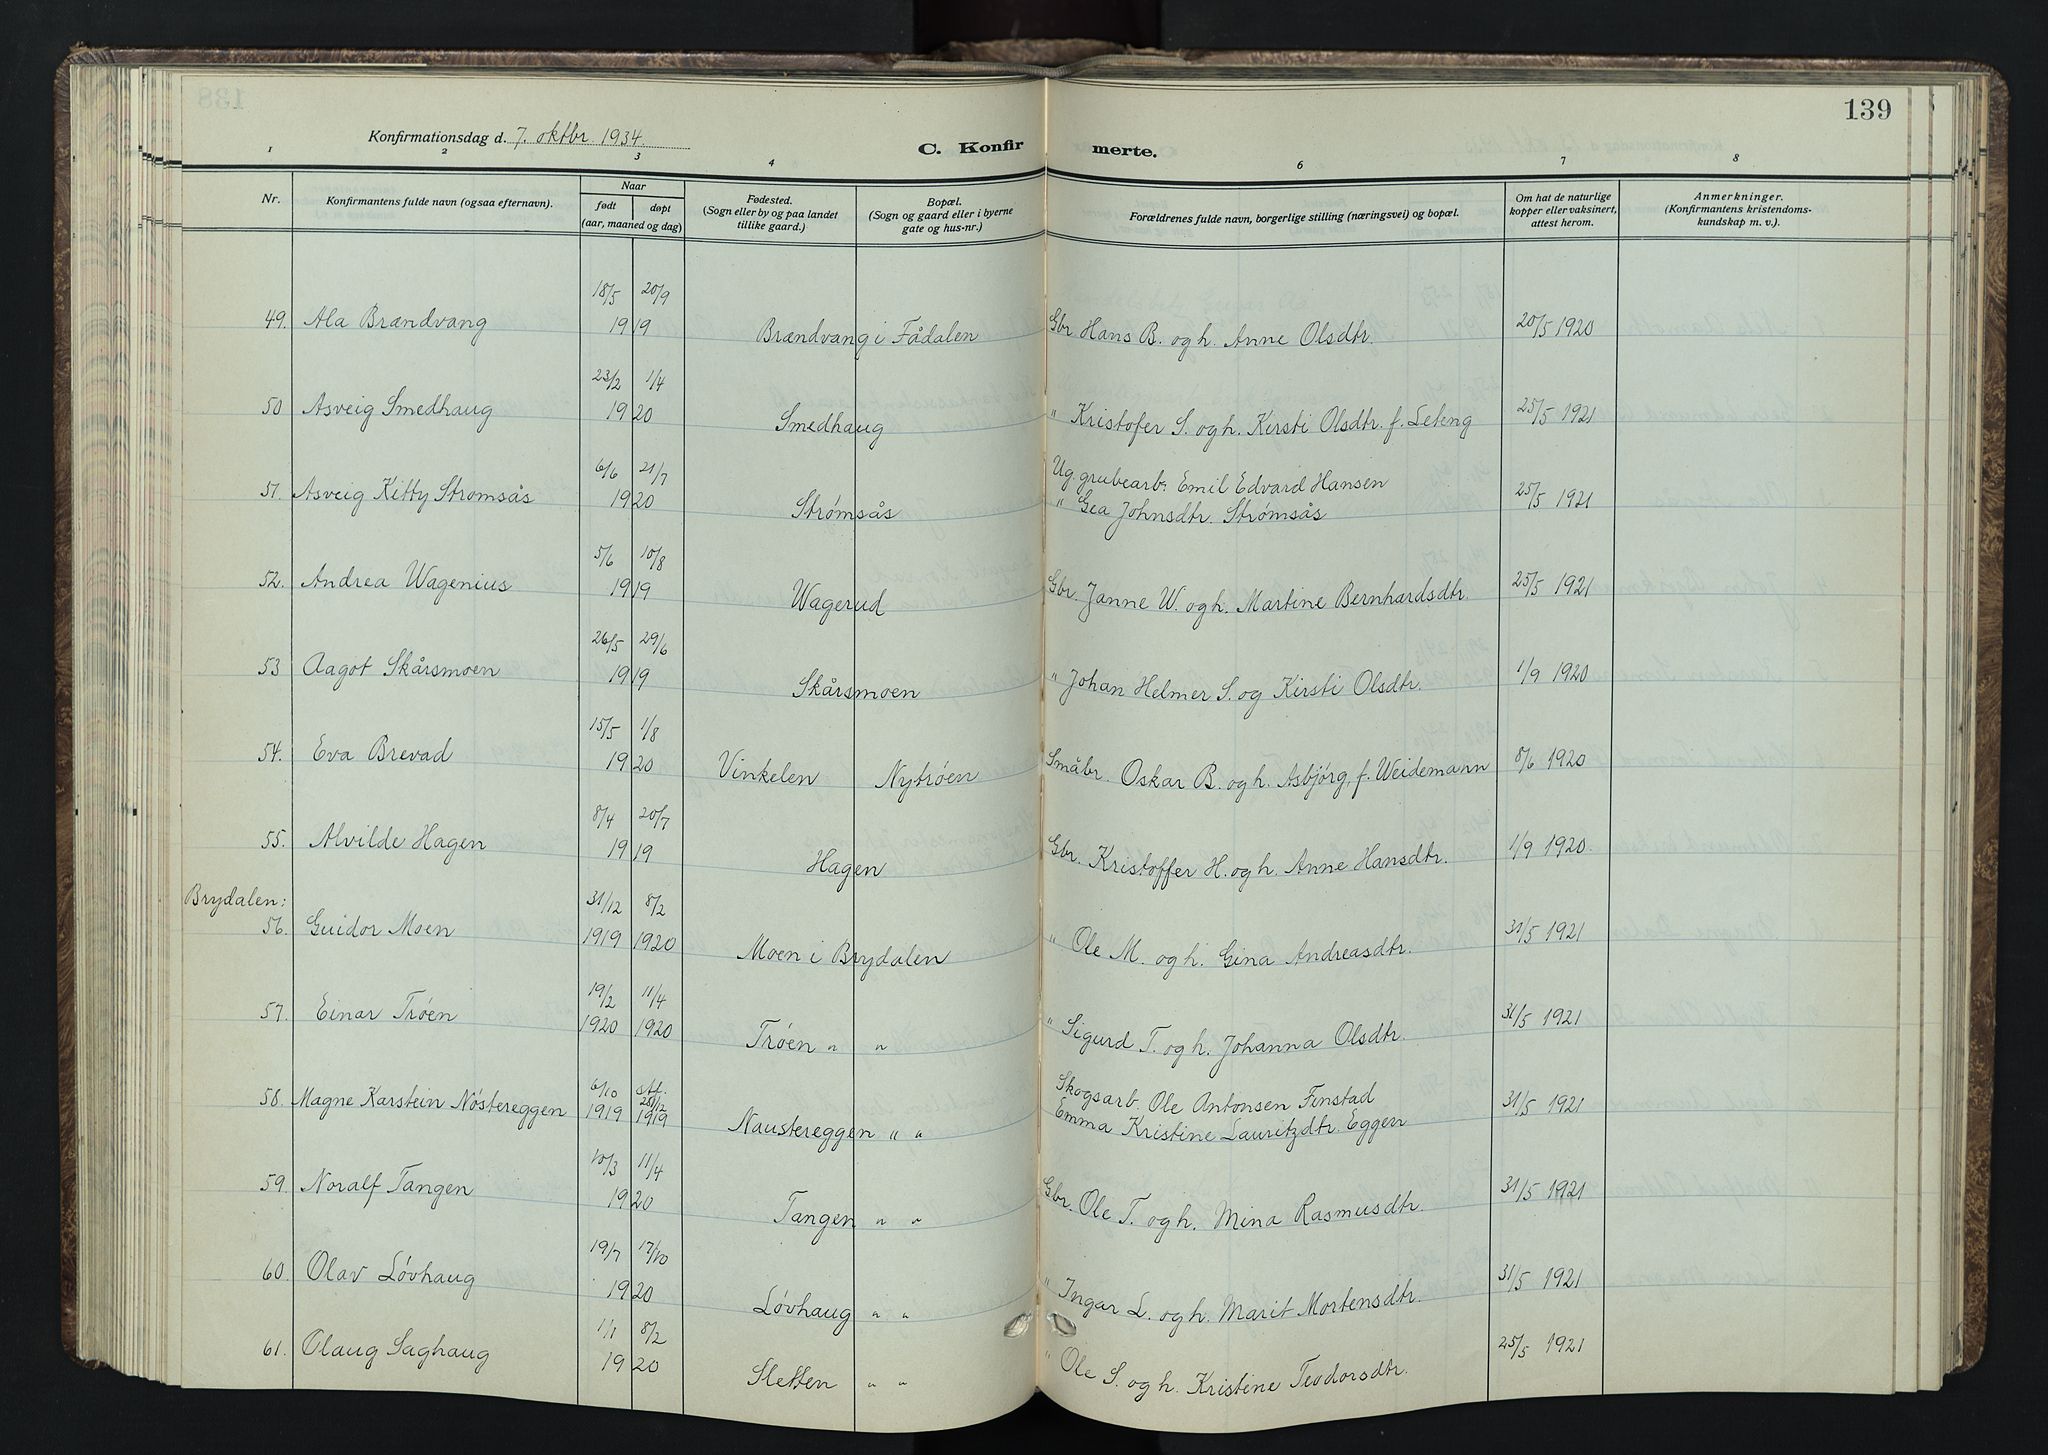 139
Konfirmationsdag d. 7. oktbr 1934.
C. Konfirmerte.
1 2 3 4 5 6 7 8
Nr.
Konfirmantens fulde navn (ogsaa efternavn).
Naar
født døpt
(aar, maaned og dag)
Fødested.
(Sogn eller by og paa landet
tillike gaard.)
Bopæl.
(Sogn og gaard eller i byerne
gate og hus-nr.)
Forældrenes fulde navn, borgerlige stilling (næringsvei) og bopæl.
Om hat de naturlige
kopper eller vaksinert,
attest herom.
Anmerkninger.
(Konfirmantens kristendoms-
kundskap m. v.).
18/5 20/9
49. Ala Brændvang 1919 Brændvang i Fådalen Gbr. Hans B. og h. Anne Olsdtr. 20/5 1920
23/2 1/4
50 Asveig Smedhaug 1920 Smedhaug " Kristofer S. og h. Kirsti Olsdtr. f. Leteng 25/5 1921
6/6 21/7 Ug. grubearb. Emil Edvard Hansen
51. Asveig Kitty Strømsås 1920 Strømsås " Gea Johnsdtr. Strømsås 25/5 1921
5/6 10/8
52. Andrea Wagenius 1919 Wagerud Gbr. Janne W. og h. Martine Bernhardsdtr. 25/5 1921
26/5 29/6
53 Aagot Skårsmoen 1919 Skårsmoen " Johan Helmer S. og Kirsti Olsdtr. 1/9 1920
15/5 1/8
54. Eva Brevad 1920 Vinkelen Nytrøen Småbr. Oskar B. og h. Asbjørg, f. Weidemann 8/6 1920
8/4 20/7
55. Alvilde Hagen 1919 Hagen Gbr. Kristoffer H. og h. Anne Hansdtr. 1/9 1920.
Brydalen: 31/12 8/2
56. Guidor Moen 1919 1920 Moen i Brydalen " Ole M. og h. Gina Andreasdtr. 31/5 1921
19/2 11/4
57. Einar Trøen 1920 1920 Trøen " " " Sigurd T. og h. Johanna Olsdtr. 31/5 1921
6/10 stf. 28/12 Skogsarb. Ole Antonsen Finstad
58. Magne Karstein Nøstereggen 1919 1919 Naustereggen " " Emma Kristine Lauritzdtr. Eggen 31/5 1921
10/3 11/4
59. Noralf Tangen 1920 Tangen " " Gbr. Ole T. og h. Mina Rasmusdtr. 31/5 1921
19/7 17/10
60. Olav Løvhaug 1920 Løvhaug " " " Ingar L. og h. Marit Mortensdtr. 31/5 1921
1/1 8/2
61. Olaug Saghaug 1920 Sletten " " " Ole S. og h. Kristine Teodorsdtr. 25/5 1921